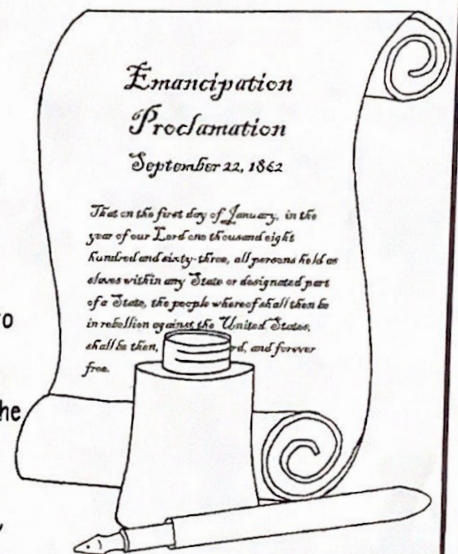 Emancipation
Proclamation
September 22, 1862
That on the first day of January, in the
year of our Lord one thousand eight
hundred and sixty-three, all persons held as
slaves within any State or designated part
of a State, the people whereof shall then be
in rebellion against the United States,
shall be then, rd, and forever
free.
he